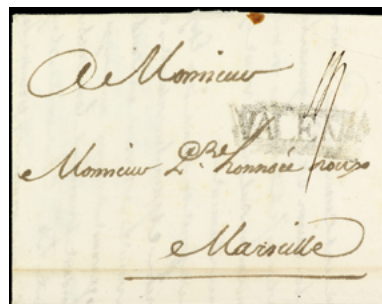 A Monsieur
VALEN
Monsieur honnoré roux
Marseille